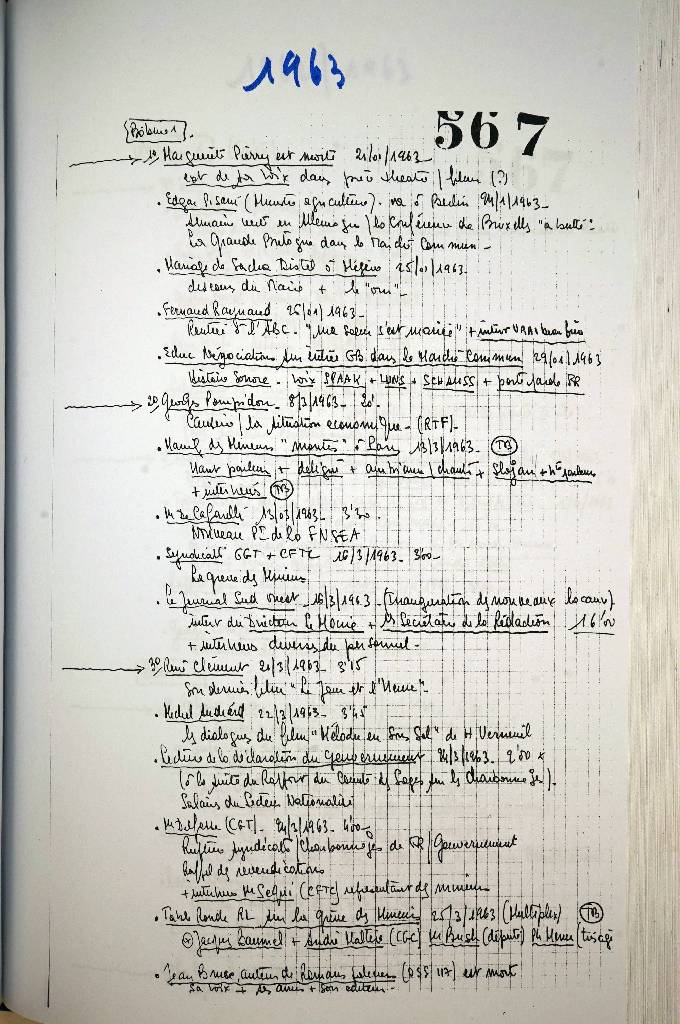 1963
567
Bobine 1.
1° Marguerite Pierry est morte 21/01/1963
ext de sa voix dans pièce theatre / films (?)
. Edgar Pisani (Ministre agriculture). va à Berlin 24/1/1963
semaine verte en Allemagne / la Conférence de Bruxelles "a buté":
La Grande Bretagne dans le Marché Commun -
. Mariage de Sacha Distel à Megève 25/01/1963
discours du Maire + le "oui"
. Fernand Raynaud 25/01/1963
Rentrée à l'ABC. "Ma soeur s'est mariée" + interv VRAI beau frère
. Echec Négociations sur entrée GB dans le Marché Commun 29/01/1963
Histoire Sonore. voix SPAAK + LUNS + SCHAUSS + porte parole
2° Georges Pompidou. 8/3/1963
Causerie / la situation economique - (RTF) -
. Manif des Mineurs "montés" à Paris 13/3/1963 - TB
Haut parleur + délégué + ambiance / chants + Slogan + hts parleurs
+ interviews TB
. M De Caffarelli 13/03/1963 - 3'30
Nouveau Pt de la FNSEA
. Syndicats CGT + CFTC 16/3/1963 - 3'00
La grève des Mineurs
. Le Journal Sud Ouest 16/3/1963 - (Inauguration des nouveaux locaux)
interv du Directeur + Secrétaire de la Rédaction 16'00
+ interviews diverses du personnel -
3° René Clément 21/3/1963 - 3'15
Son dernier film "Le Jour et l'Heure" -
. Michel Audiard 22/3/1963 - 3'45
les dialogues du film "Mélodie en Sous Sol" de H Verneuil
. Lecture de la déclaration du Gouvernement 24/3/1963 -
(à la suite du Rapport du Comité des Sages sur les charbonnages) -
Salaires du Secteur Nationalisé
. M (CGT) - 24/3/1963 - 4'00
Rupture syndicats / Charbonnages de FR / Gouvernement
Rappel des revendications
+ interview M (CFTC) représentant des mineurs
. Table Ronde RL sur la grève des Mineurs 25/3/1963 (Multiplex) TB
Jacques Baumel + André Malterre (CGC) (député)
. Jean Bruce, auteur de Romans (OSS 117) est mort
Sa voix + ses amis + son éditeur -